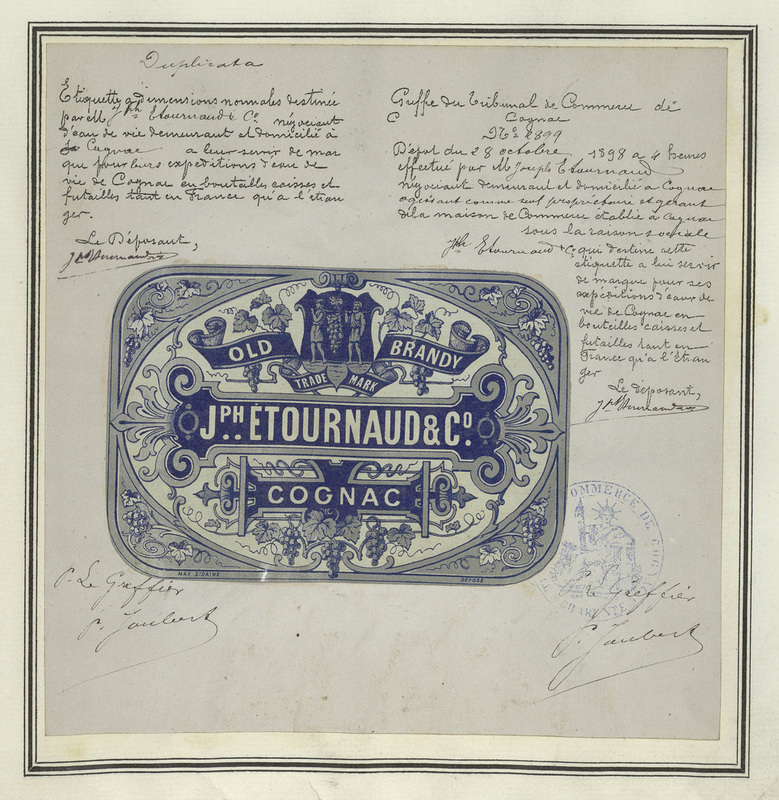 Duplicata
Etiquette a dimensions normales destinée
par M Jph Etournaud & Co négociant
d'eau de vie demeurant et domicilié à
Cognac a leur servir de mar
que pour leurs expeditions d'eau de
vie de Cognac en bouteilles caisses et
futailles tant en France qu'a l'étran
ger.
Le Déposant,
Jph Etournaud
Greffe du Tribunal de Commerce de
C Cognac
No 2899
Dépot du 28 octobre 1898 a 4 heures
effectué par M Joseph Etournaud
négociant demeurant et domicilié a Cognac
agissant comme seul propriétaire et gérant
de la maison de Commerce établie a Cognac
sous la raison sociale
Jph Etournaud & Co qui destine cette
étiquette a lui servir
de marque pour ses
expéditions d'eau de
vie de Cognac en
bouteilles caisses et
futailles tant en
France qu'a l'étran
ger
Le deposant,
Jph Etournaud
OLD BRANDY
TRADE MARK
JPH ÉTOURNAUD & Co
COGNAC
MAX SIDAINE
DÉPOSÉ
P. Le Greffier
P. Joubert
COMMERCE DE COGNAC
CHARENTE
P. Le Greffier
P. Joubert